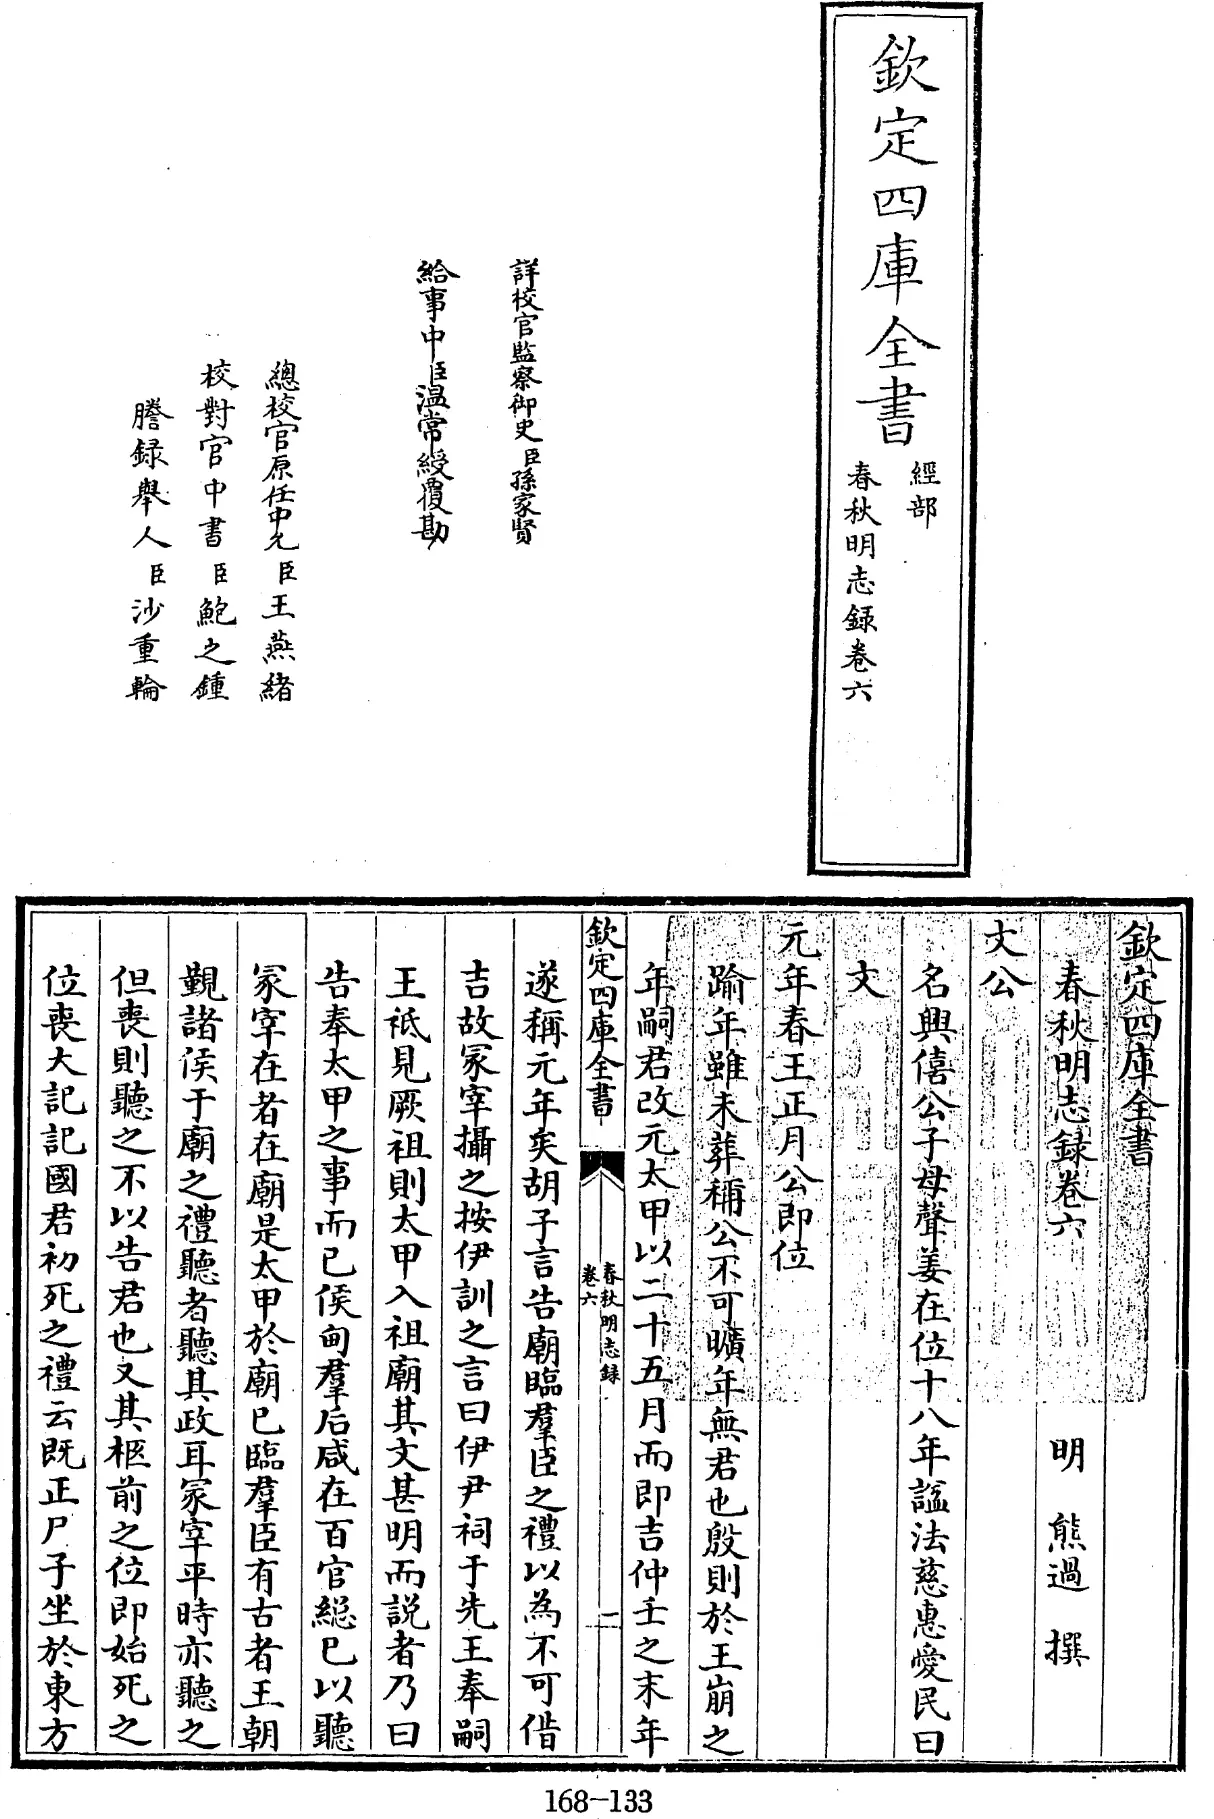 欽定四庫全書
經部
春秋明志録卷六
詳校官監察御史臣孫家賢
給事中臣温常綬覆勘
總校官原任中允臣王燕緒
校對官中書臣鮑之鍾
謄録舉人臣沙重輪
欽定四庫全書
春秋明志録卷六
明 熊過 撰
文公
名興僖公子母聲姜在位十八年諡法慈惠愛民曰
文
元年春王正月公即位
踰年雖未葬稱公不可曠年無君也殷則於王崩之
年嗣君改元太甲以二十五月而即吉仲壬之末年
欽定四庫全書
春秋明志録
卷六
二
遂稱元年矣胡子言告廟臨羣臣之禮以為不可借
吉故冢宰攝之按伊訓之言曰伊尹祠于先王奉嗣
王祗見厥祖則太甲入祖廟其文甚明而説者乃曰
告奉太甲之事而已侯甸羣后咸在百官總已以聽
冢宰在者在廟是太甲於廟已臨羣臣有古者王朝
覲諸侯于廟之禮聽者聽其政耳冢宰平時亦聽之
但喪則聽之不以告君也又其柩前之位即始死之
位喪大記記國君初死之禮云既正尸子坐於東方
168-133